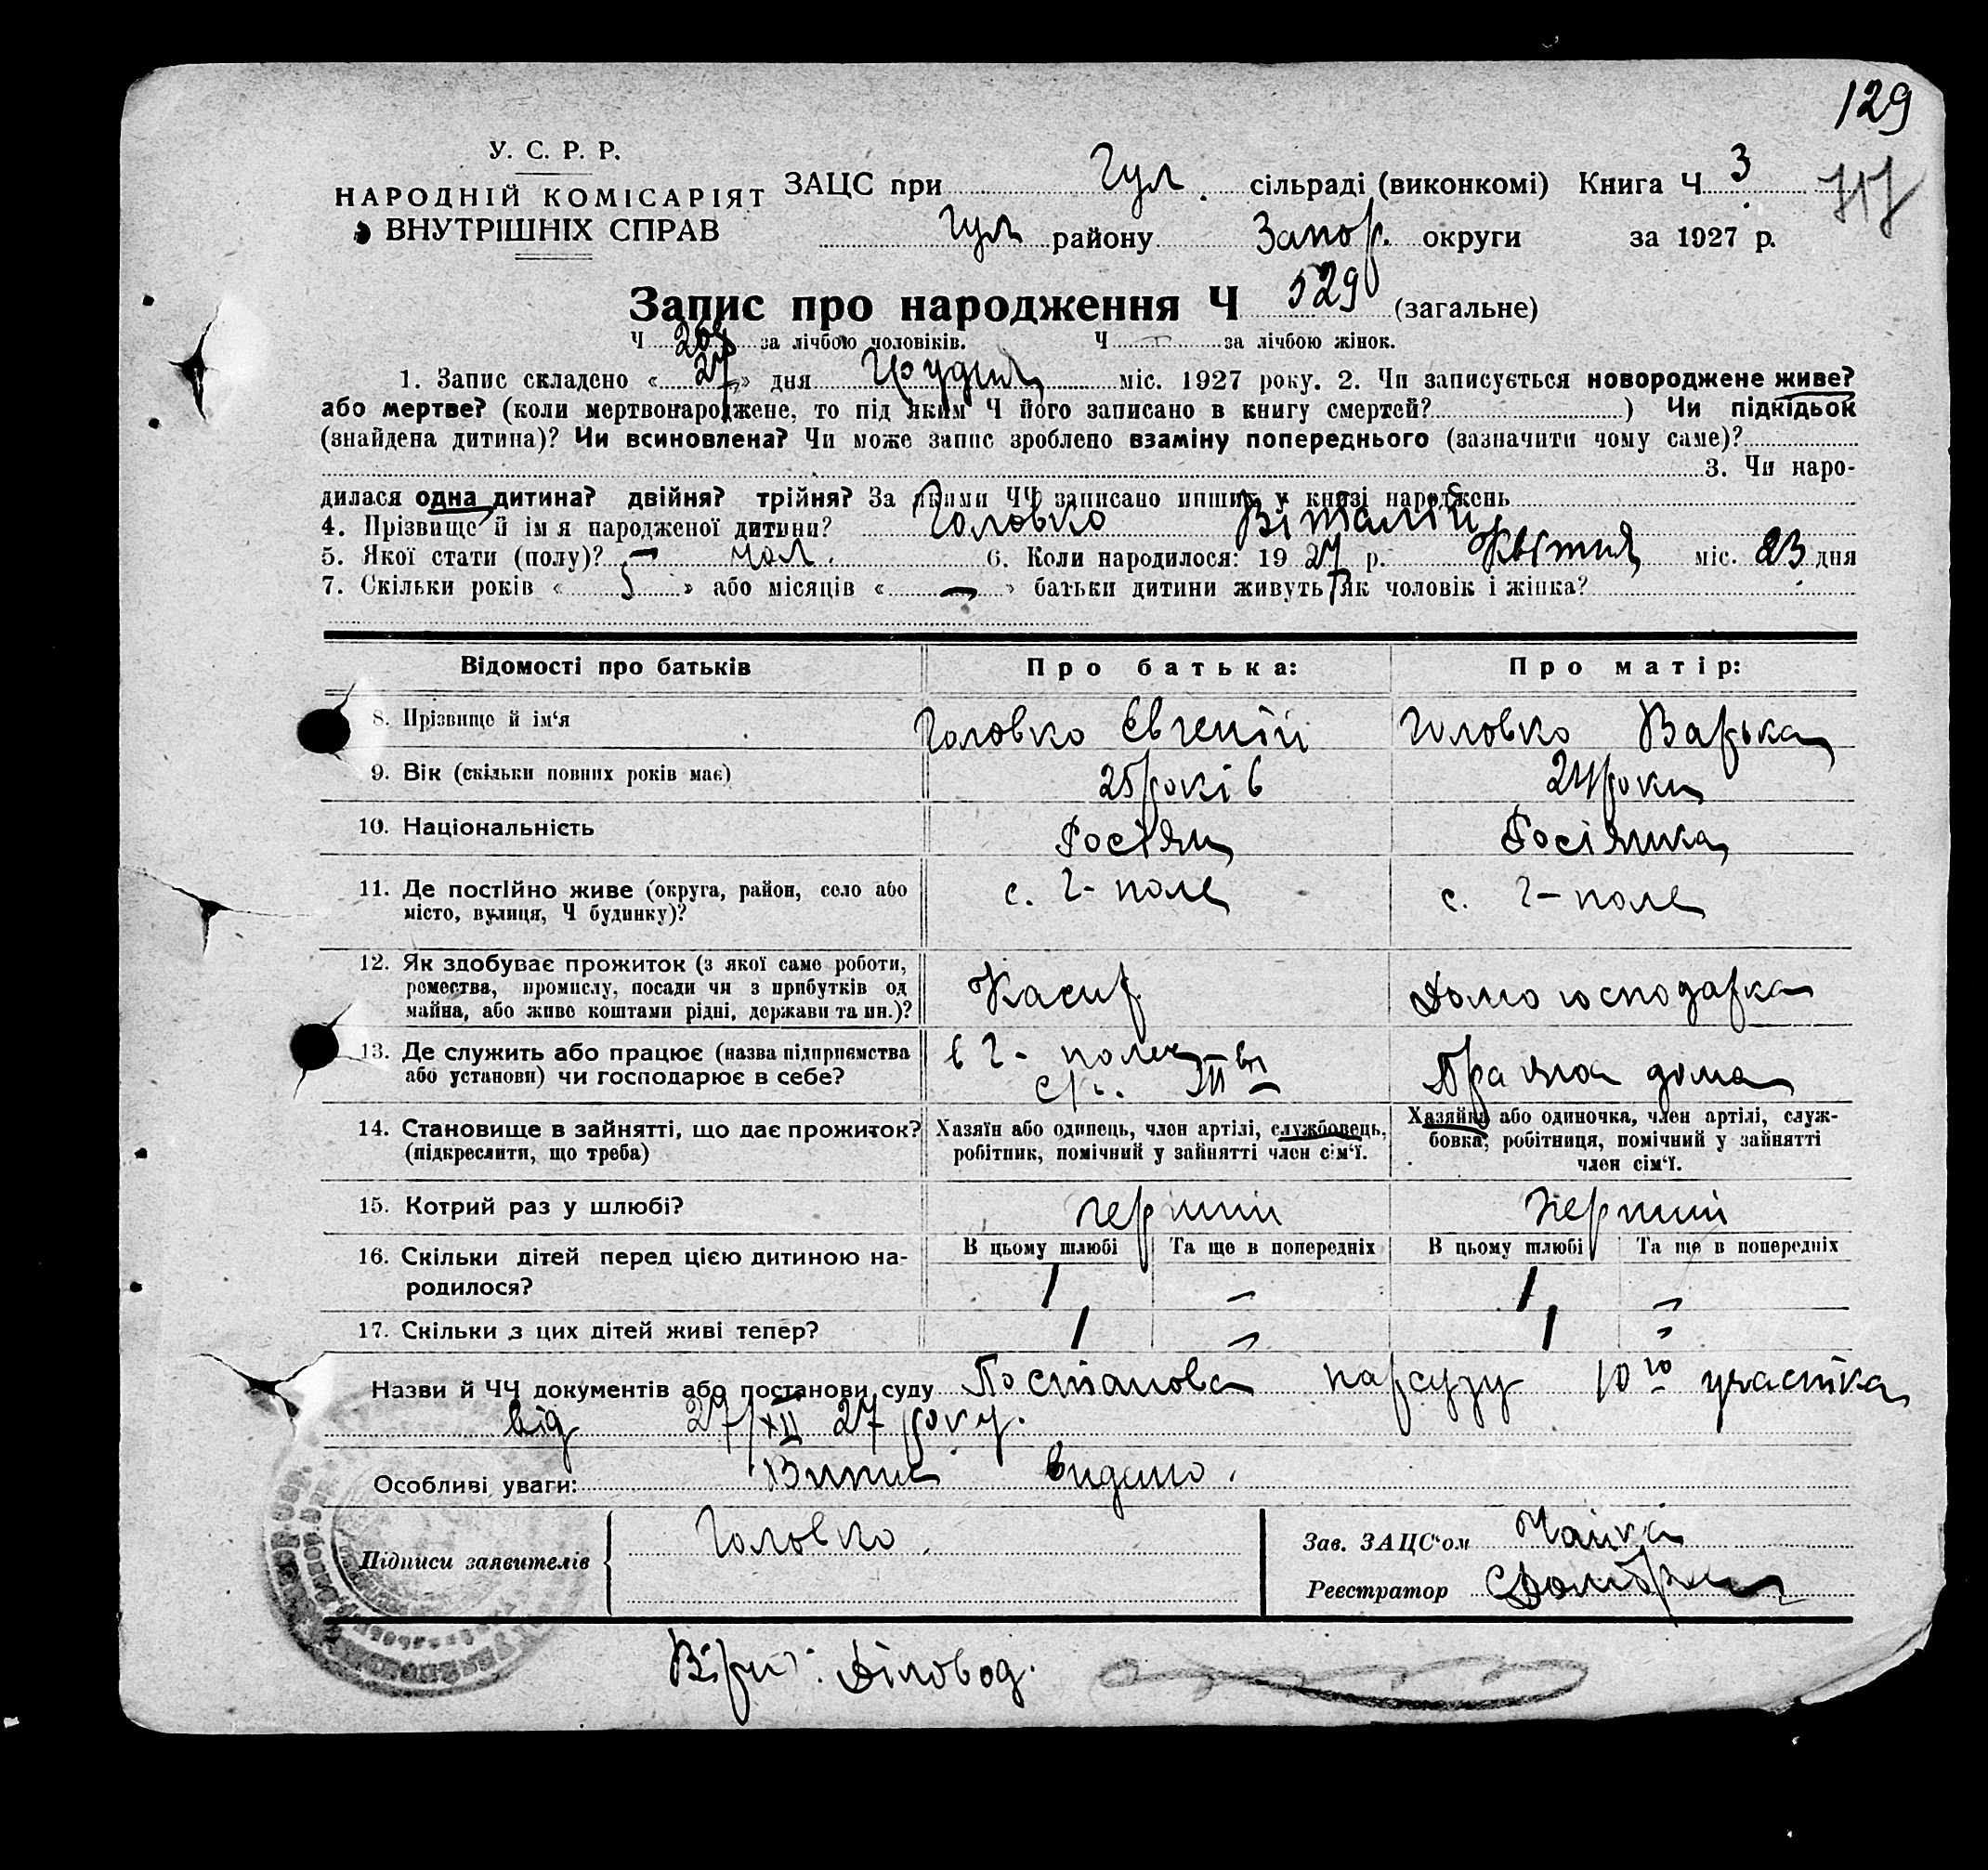 129
У. С. Р. Р.
НАРОДНІЙ КОМІСАРІЯТ
ВНУТРІШНІХ СПРАВ
ЗАЦС при Гул. сільраді (виконкомі) Книга Ч. 3
Гул району Запор. округи за 1927 р.
Запис про народження Ч 529 (загальне)
Ч за лічбою чоловіків. Ч — за лічбою жінок.
1. Запис складено « 27 » дня Грудня міс. 1927 року. 2. Чи записується новороджене живе?
або мертве? (коли мертвонароджене, то під яким Ч його записано в книгу смертей? ) Чи підкідьок
(знайдена дитина)? Чи всиновлена? Чи може запис зроблено взаміну попереднього (зазначити чому саме)?
3. Чи наро-
дилася одна дитина? двійня? трійня? За якими ЧЧ записано инших у книзі народжень
4. Прізвище й ім'я народженої дитини? Головко Віталій
5. Якої стати (полу)? — чол. 6. Коли народилося: 19 27 р. Квітня міс. 23 дня
7. Скільки років « 5 » або місяців « — » батьки дитини живуть як чоловік і жінка?
Відомості про батьків Про батька: Про матір:
8. Прізвище й ім'я Головко Євгеній Головко Варька
9. Вік (скільки повних років має) 25 років 24 роки
10. Національність Росіян Росіянка
11. Де постійно живе (округа, район, село або
місто, вулиця, Ч будинку)? с. Г-поле с. Г-поле
12. Як здобуває прожиток (з якої саме роботи,
ремества, промислу, посади чи з прибутків од
майна, або живе коштами рідні, держави та ин.)? Касир Домогосподарка
13. Де служить або працює (назва підприємства
або установи) чи господарює в себе? в Г-поле дома
14. Становище в зайнятті, що дає прожиток?
(підкреслити, що треба)
Хазяїн або одинець, член артілі, службовець,
робітник, помічний у зайнятті член сім'ї.
Хазяйка або одиночка, член артілі, служ-
бовка, робітниця, помічний у зайнятті
член сім'ї.
15. Котрий раз у шлюбі? перший перший
16. Скільки дітей перед цією дитиною на-
родилося?
В цьому шлюбі Та ще в попередніх В цьому шлюбі Та ще в попередніх
1 — 1 —
17. Скільки з цих дітей живі тепер? 1 — 1 —
Назви й ЧЧ документів або постанови суду Постанова нарсуду 10го участка
від 27/XII 27 року.
Особливі уваги: Випис видано.
Підписи заявителів Головко
Зав. ЗАЦС'ом Чайка
Реєстратор
Вірно: Діловод.